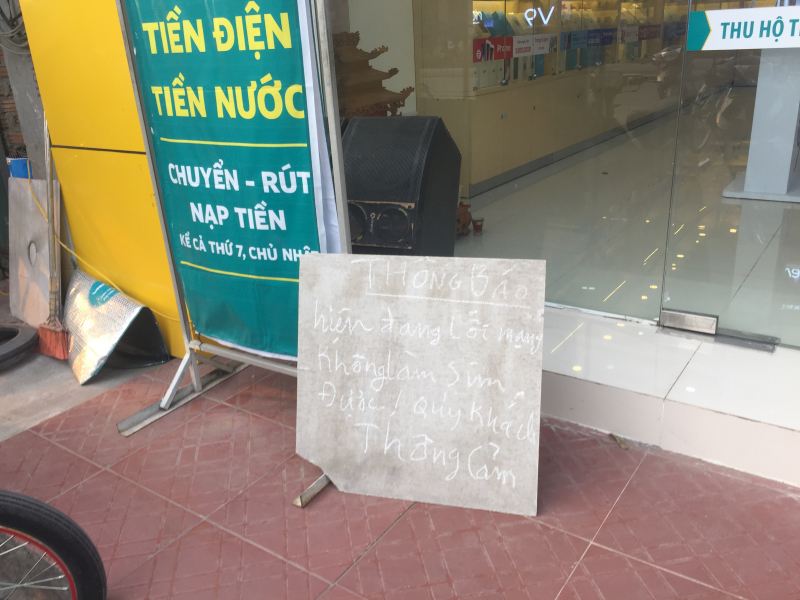 TIỀN ĐIỆN
TIỀN NƯỚC
CHUYỂN - RÚT
NẠP TIỀN
KỂ CẢ THỨ 7, CHỦ NHẬ
THU HỘ T
THÔNG BÁO
hiện đang Lỗi mạng
Không Làm Sim
Được! Qúy Khách
Thông Cảm